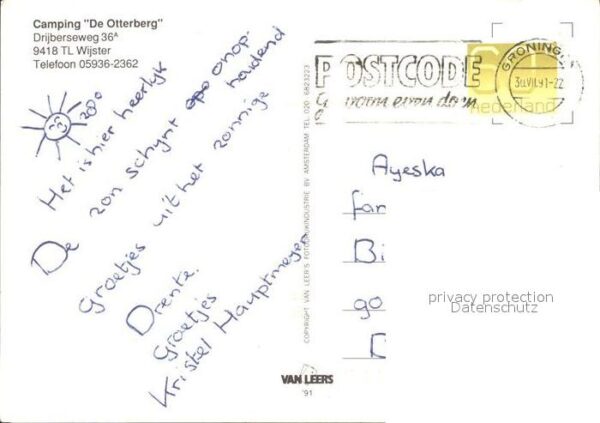 Camping "De Otterberg"
Drijberseweg 36ᴬ
9418 TL Wijster
Telefoon 05936-2362
Het is hier heerlijk
De zon schynt onop-
houdend
Groetjes uit het zonnige
Drente.
Groetjes
Kristel Hauptmeyer
COPYRIGHT VAN LEER'S FOTODRUKINDUSTRIE BV AMSTERDAM TEL. 020 6823223
VAN LEERS
'91
POSTCODE
GRONINGEN
30.VII.91-22
nederland
Ayeska
fam
Bi
go
D
privacy protection
Datenschutz